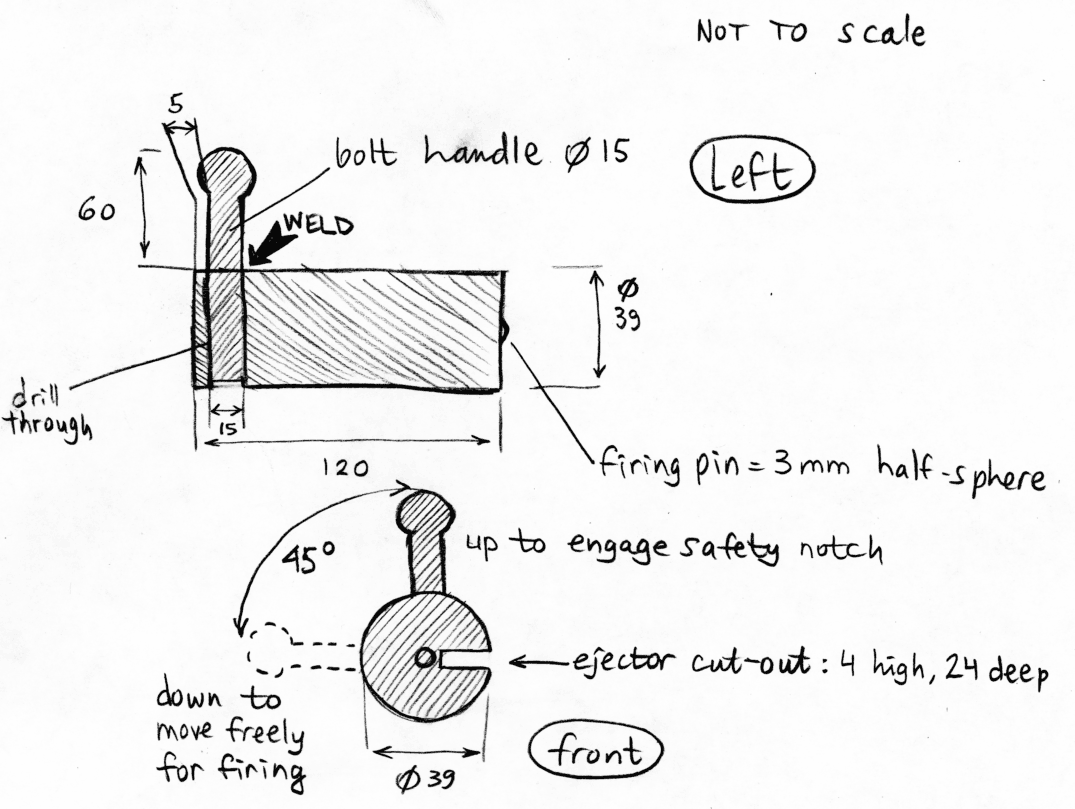 NOT TO scale
5
bolt handle Ø 15
Left
60
WELD
Ø
39
drill
through
15
120
firing pin = 3 mm half-sphere
45°
up to engage safety notch
ejector cut-out : 4 high, 24 deep
down to
move freely
for firing
front
Ø 39